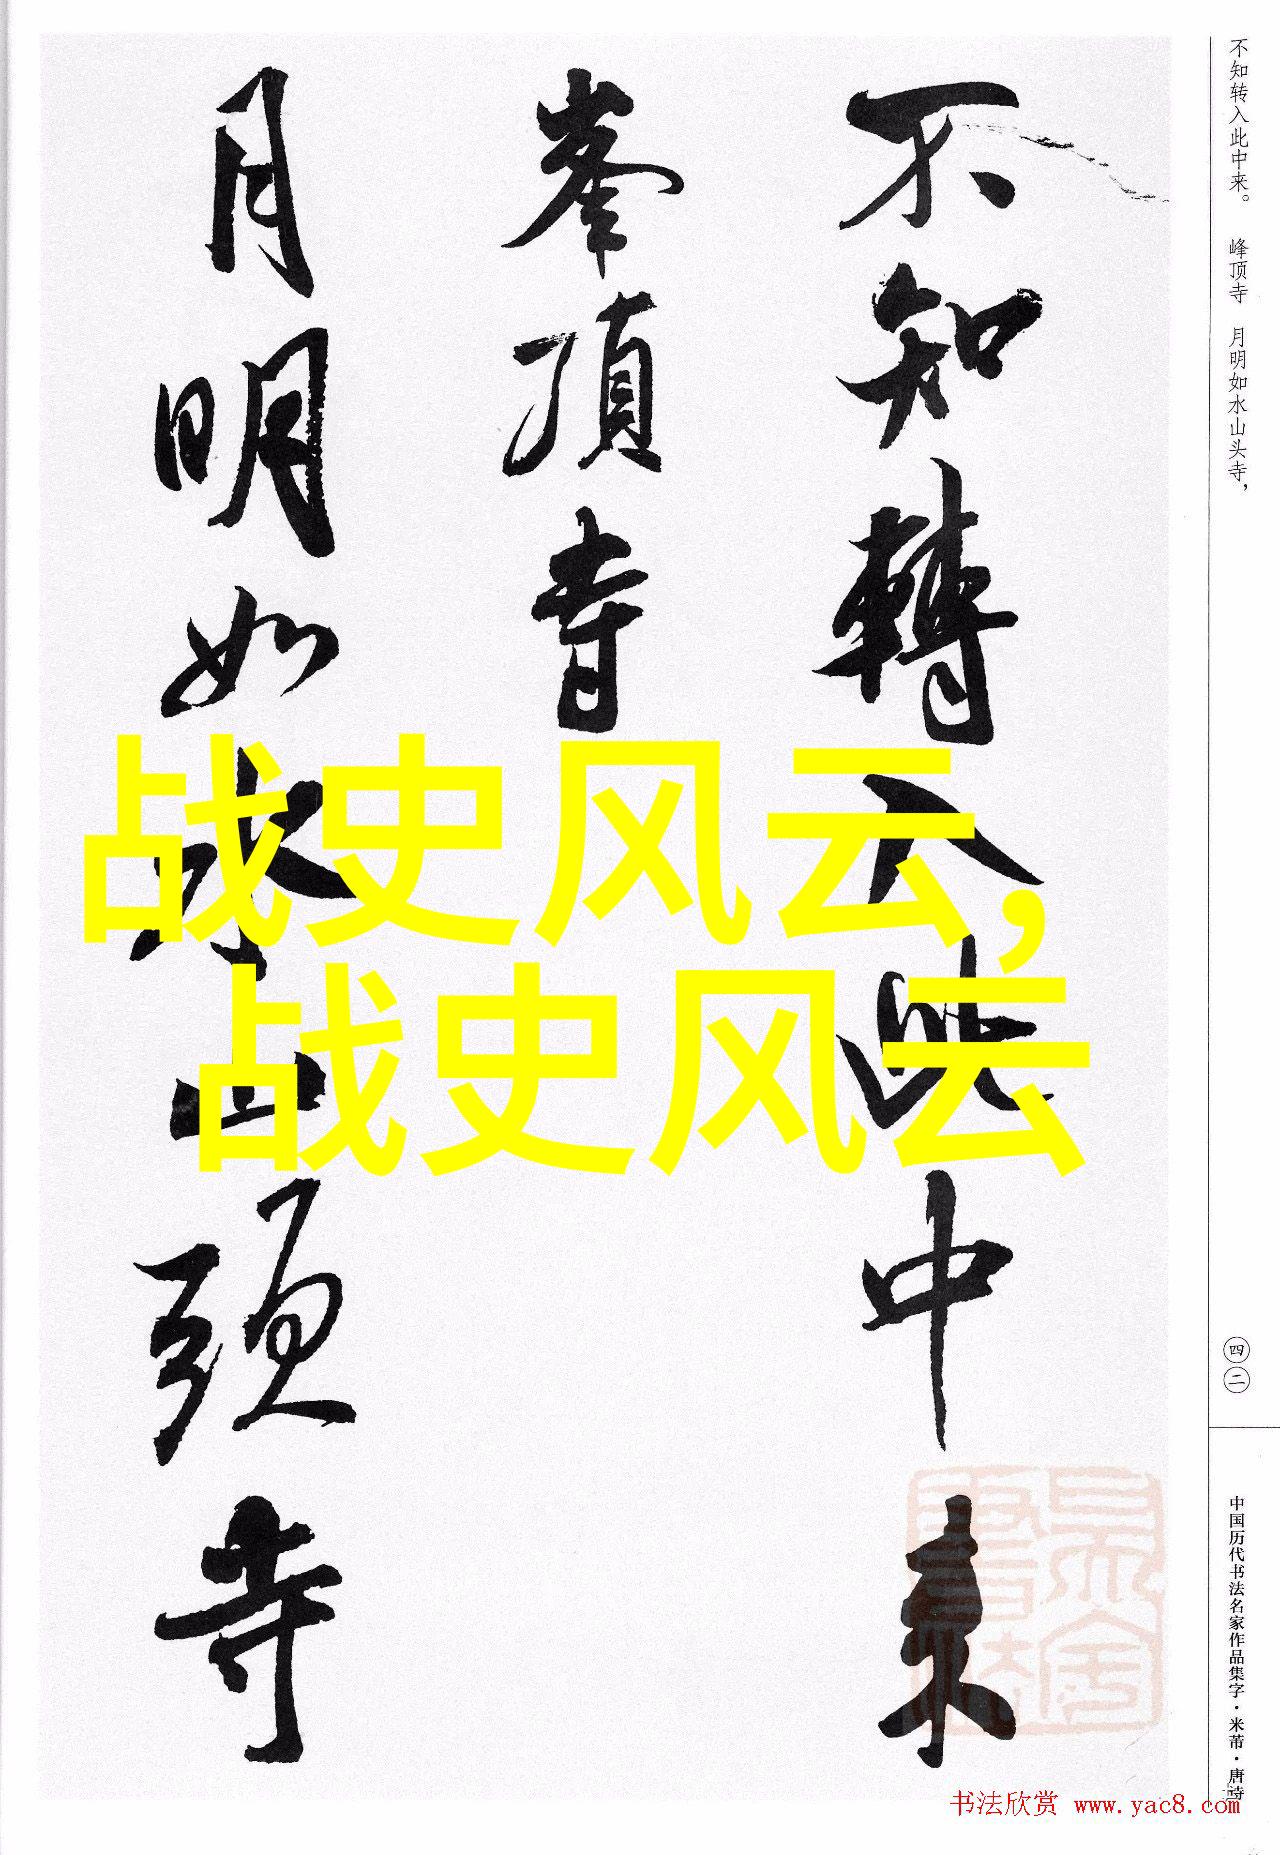 不知转入此中来。 峰顶寺 月明如水山头寺,
不知轉入此中来
峯頂寺
月明如水山頭寺
战史风云,
战史风云
四二
中国历代书法名家作品集字·米芾·唐诗
书法欣赏 www.yac8.com